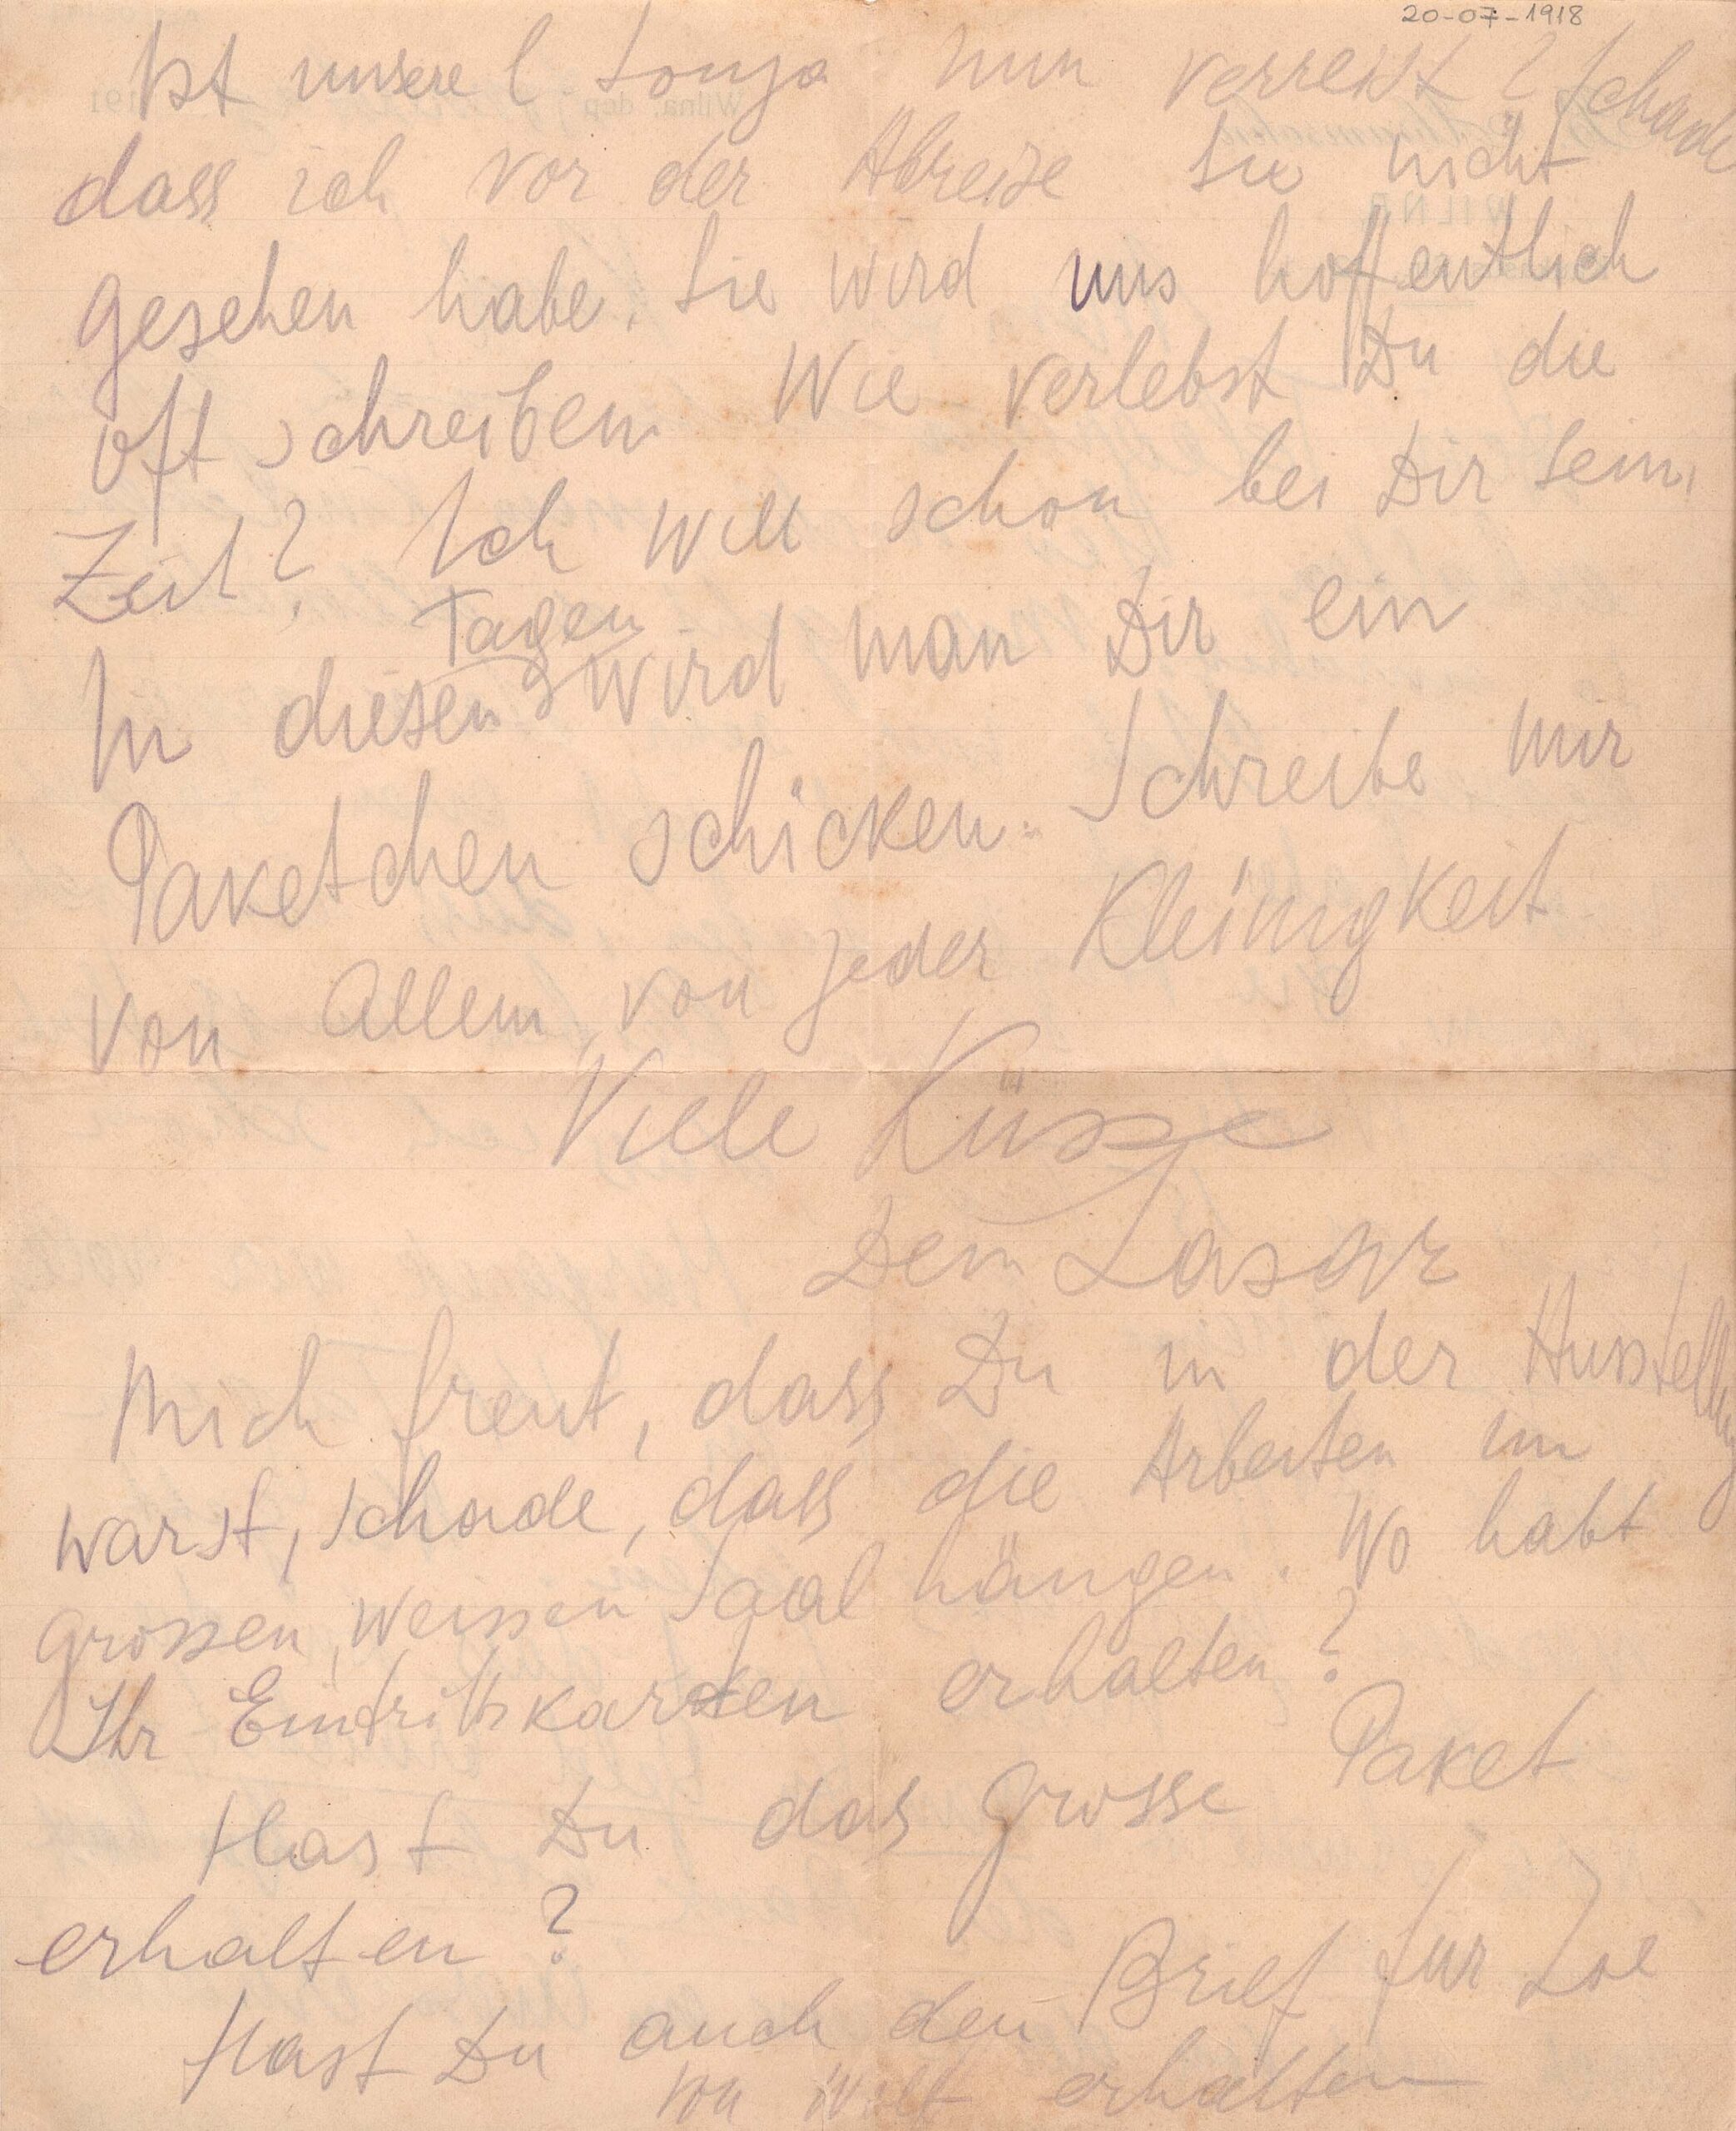 20-07-1918
Ist unsere l Sonja nun verreist? Schade
dass ich vor der Abreise sie nicht
gesehen habe. Sie wird uns hoffentlich
oft schreiben. Wie verlebst Du die
Zeit? Ich will schon bei Dir sein,
In diesen Tagen wird man Dir ein
Paketchen schicken. Schreibe mir
von Allem, von jeder Kleinigkeit
Viele Küsse
Dein Lasar
Mich freut, dass Du in der Ausstellung
warst, schade, dass die Arbeiten im
grossen, weissen Saal hängen. Wo habt
Ihr Eintrittskarten erhalten?
Hast Du das grosse Paket
erhalten?
Hast Du auch den Brief für Zoe
von erhalten